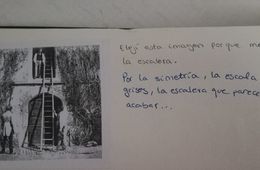 Elejí esta imagen porque me
la escalera.
Por la simetría, la escala
grises, la escalera que parece
acabar...